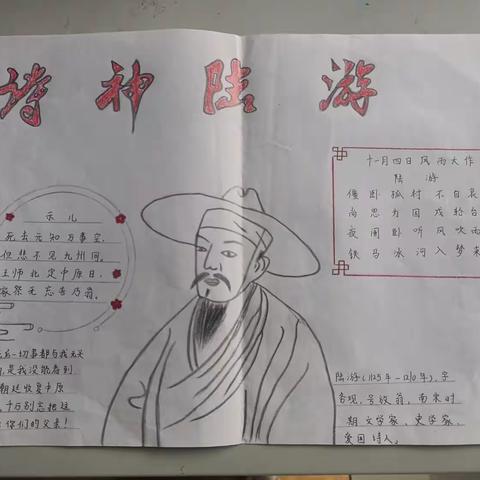 诗神陆游
示儿
死去元知万事空,
但悲不见九州同。
王师北定中原日,
家祭无忘告乃翁。
后一切事都与我无关
是我没能看到
朝廷收复中原
千万别忘把这
你们的父亲!
十一月四日风雨大作
陆 游
僵卧孤村不自哀
尚思为国戍轮台
夜阑卧听风吹雨
铁马冰河入梦来
陆游(1125年—1210年),字
务观,号放翁,南宋时
期文学家、史学家、
爱国诗人。